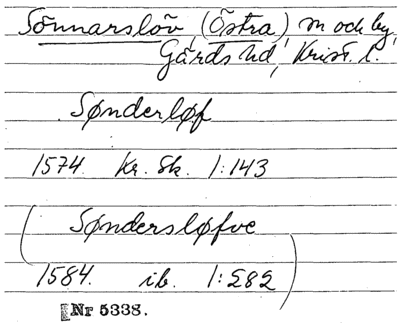 Sönnarslöv, (Östra) sn och by,
Gärds hd, Krist. l.
Sønderløf
1574. Kr. Sk. 1:143
(Søndersløfve
1584. ib. 1:282)
Nr 5338.